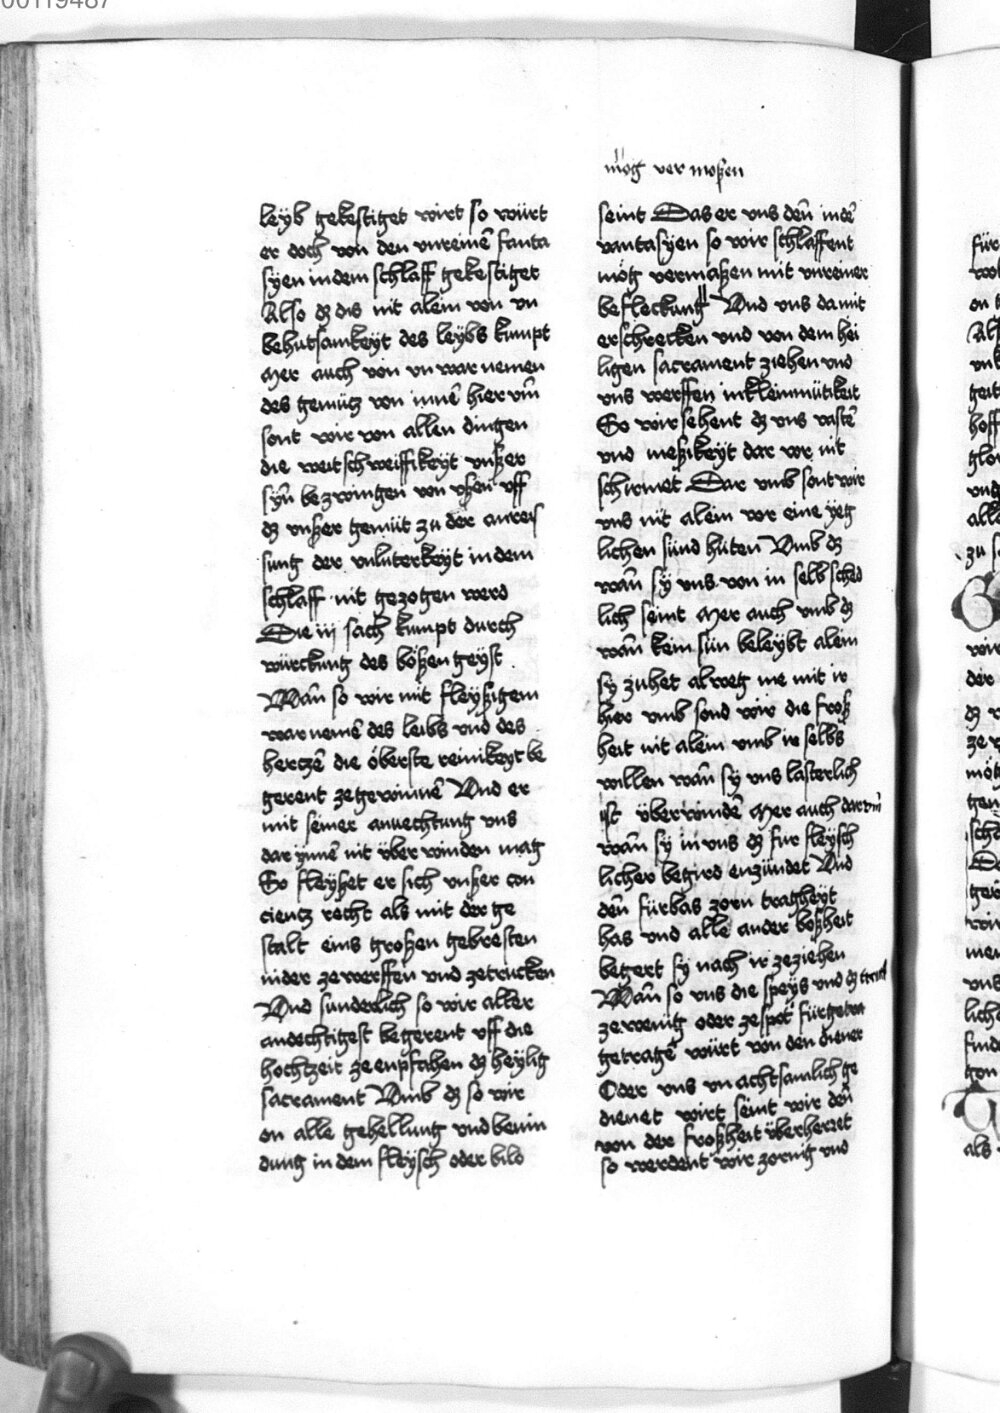 00119487
leÿb gekestiget wirt so würt
er doch von den vnreinē fanta
syen in dem schlaff gekestiget
Also dz dis nit alein von vn
behutsamkeÿt des leÿbs kumpt
Mer auch von vn war nemen
des gemütz von innē hier vm̄
sont wir von allen dingen
die weitschweiffikeÿt vnßer
syn̄ bezwingen von vßen vff
dz vnßer gemüt zu der anreis
sung der vnluterkeÿt in dem
schlaff nit gezogen werd
Die iij sach kumpt durch
würckung des bößen geÿst
Wan̄ so wir mit fleÿßigem
war nemē des leibs vnd des
hertzē die öberste reinikeyt be
gerent ze gewinnē Vnd er
mit seiner anvechtung vns
dar ÿnnē nit über winden mag
So fleÿßet er sich vnßer con
cientz recht als mit der ge
stalt eins großen gebresten
nider ze werffen vnd zetrucken
Vnd sunderlich so wir aller
andechtigest begerent vff die
hochtzeit ze enpfahen dz heÿlig
sacrament Vmb dz so wir
on alle gehellung vnd bewin
dung in dem fleÿsch oder bild
mög ver moßen
seint Das er vns den̄ in dē
vantasÿen so wir schlaffent
mög vermaßen mit vnreiner
befleckung Vnd vns da mit
erschrecken vnd von dem hei
ligen sacrament ziehen vnd
vns werffen in kleinmütikeit
So wir sehent dz vns vastē
vnd meßikeÿt dar vor nit
schirmet Dar vmb sont wir
vns nit alein vor eine ÿeg
lichen sünd hüten Vmb dz
wan̄ sÿ vns von in selb sched
lich seint Mer auch vmb dz
wan̄ kein sün beleÿbt alein
sÿ zuhet alweg me mit ir
hier vmb sond wir die froß
heit nit alein vmb ir selbs
willen wan̄ sÿ vns lasterlich
ist überwindē Mer auch dar vm̄
wan̄ sÿ in vns dz für fleÿsch
licher begird enzündet Vnd
den̄ fürbas zorn tragheÿt
has vnd alle ander boßheit
begert sÿ nach ir ze ziehen
Wan̄ so vns die speÿs vnd dz trank
ze wenig oder ze spot fürgetra
getragē würt von den diener
Oder vns vn achtsamlich ge
dienet wirt seint wir den̄
von der froßheit überherret
so werdent wir zornig vnd